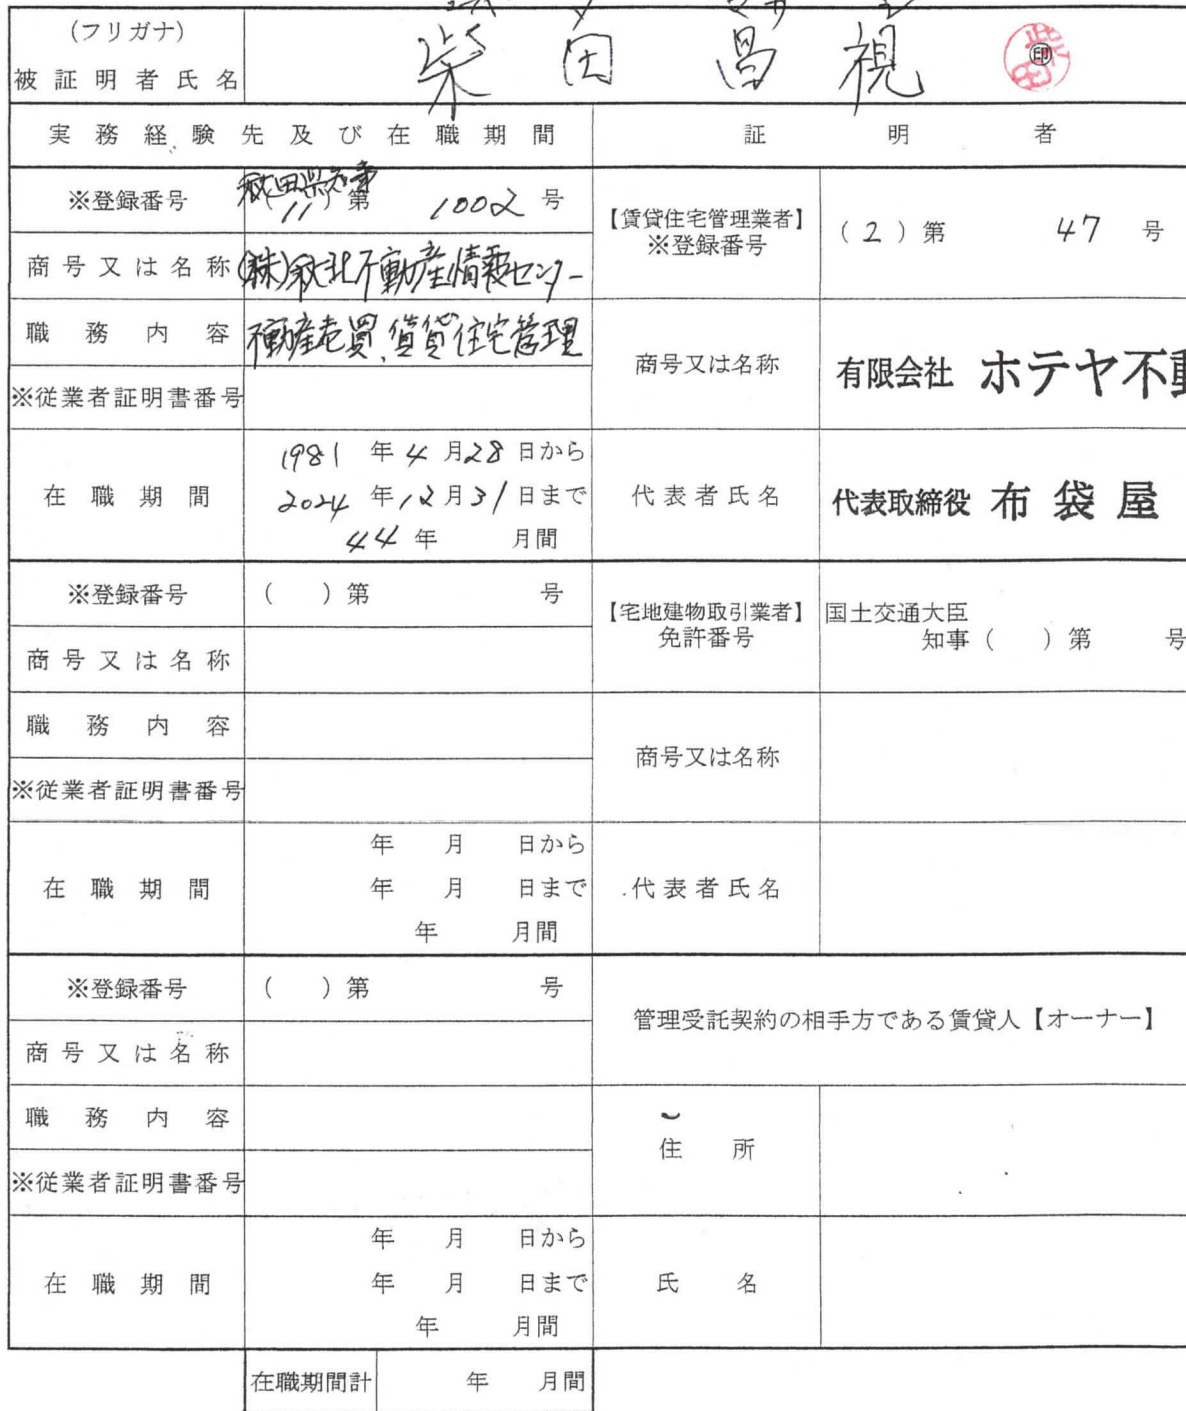 (フリガナ)
被証明者氏名 柴田昌視 ㊞
実務経験先及び在職期間 証明者
※登録番号 秋田県知事(11)第1002号
【賃貸住宅管理業者】
※登録番号 (2)第 47 号
商号又は名称 (株)秋北不動産情報センター
職務内容 不動産売買、賃貸住宅管理
商号又は名称 有限会社 ホテヤ不動
※従業者証明書番号
在職期間
1981年4月28日から
2024年12月31日まで
44年 月間
代表者氏名 代表取締役 布袋屋
※登録番号 ( )第 号
【宅地建物取引業者】
免許番号
国土交通大臣
知事( )第 号
商号又は名称
職務内容
商号又は名称
※従業者証明書番号
在職期間
年 月 日から
年 月 日まで
年 月間
代表者氏名
※登録番号 ( )第 号
管理受託契約の相手方である賃貸人【オーナー】
商号又は名称
職務内容
住所
※従業者証明書番号
在職期間
年 月 日から
年 月 日まで
年 月間
氏名
在職期間計 年 月間